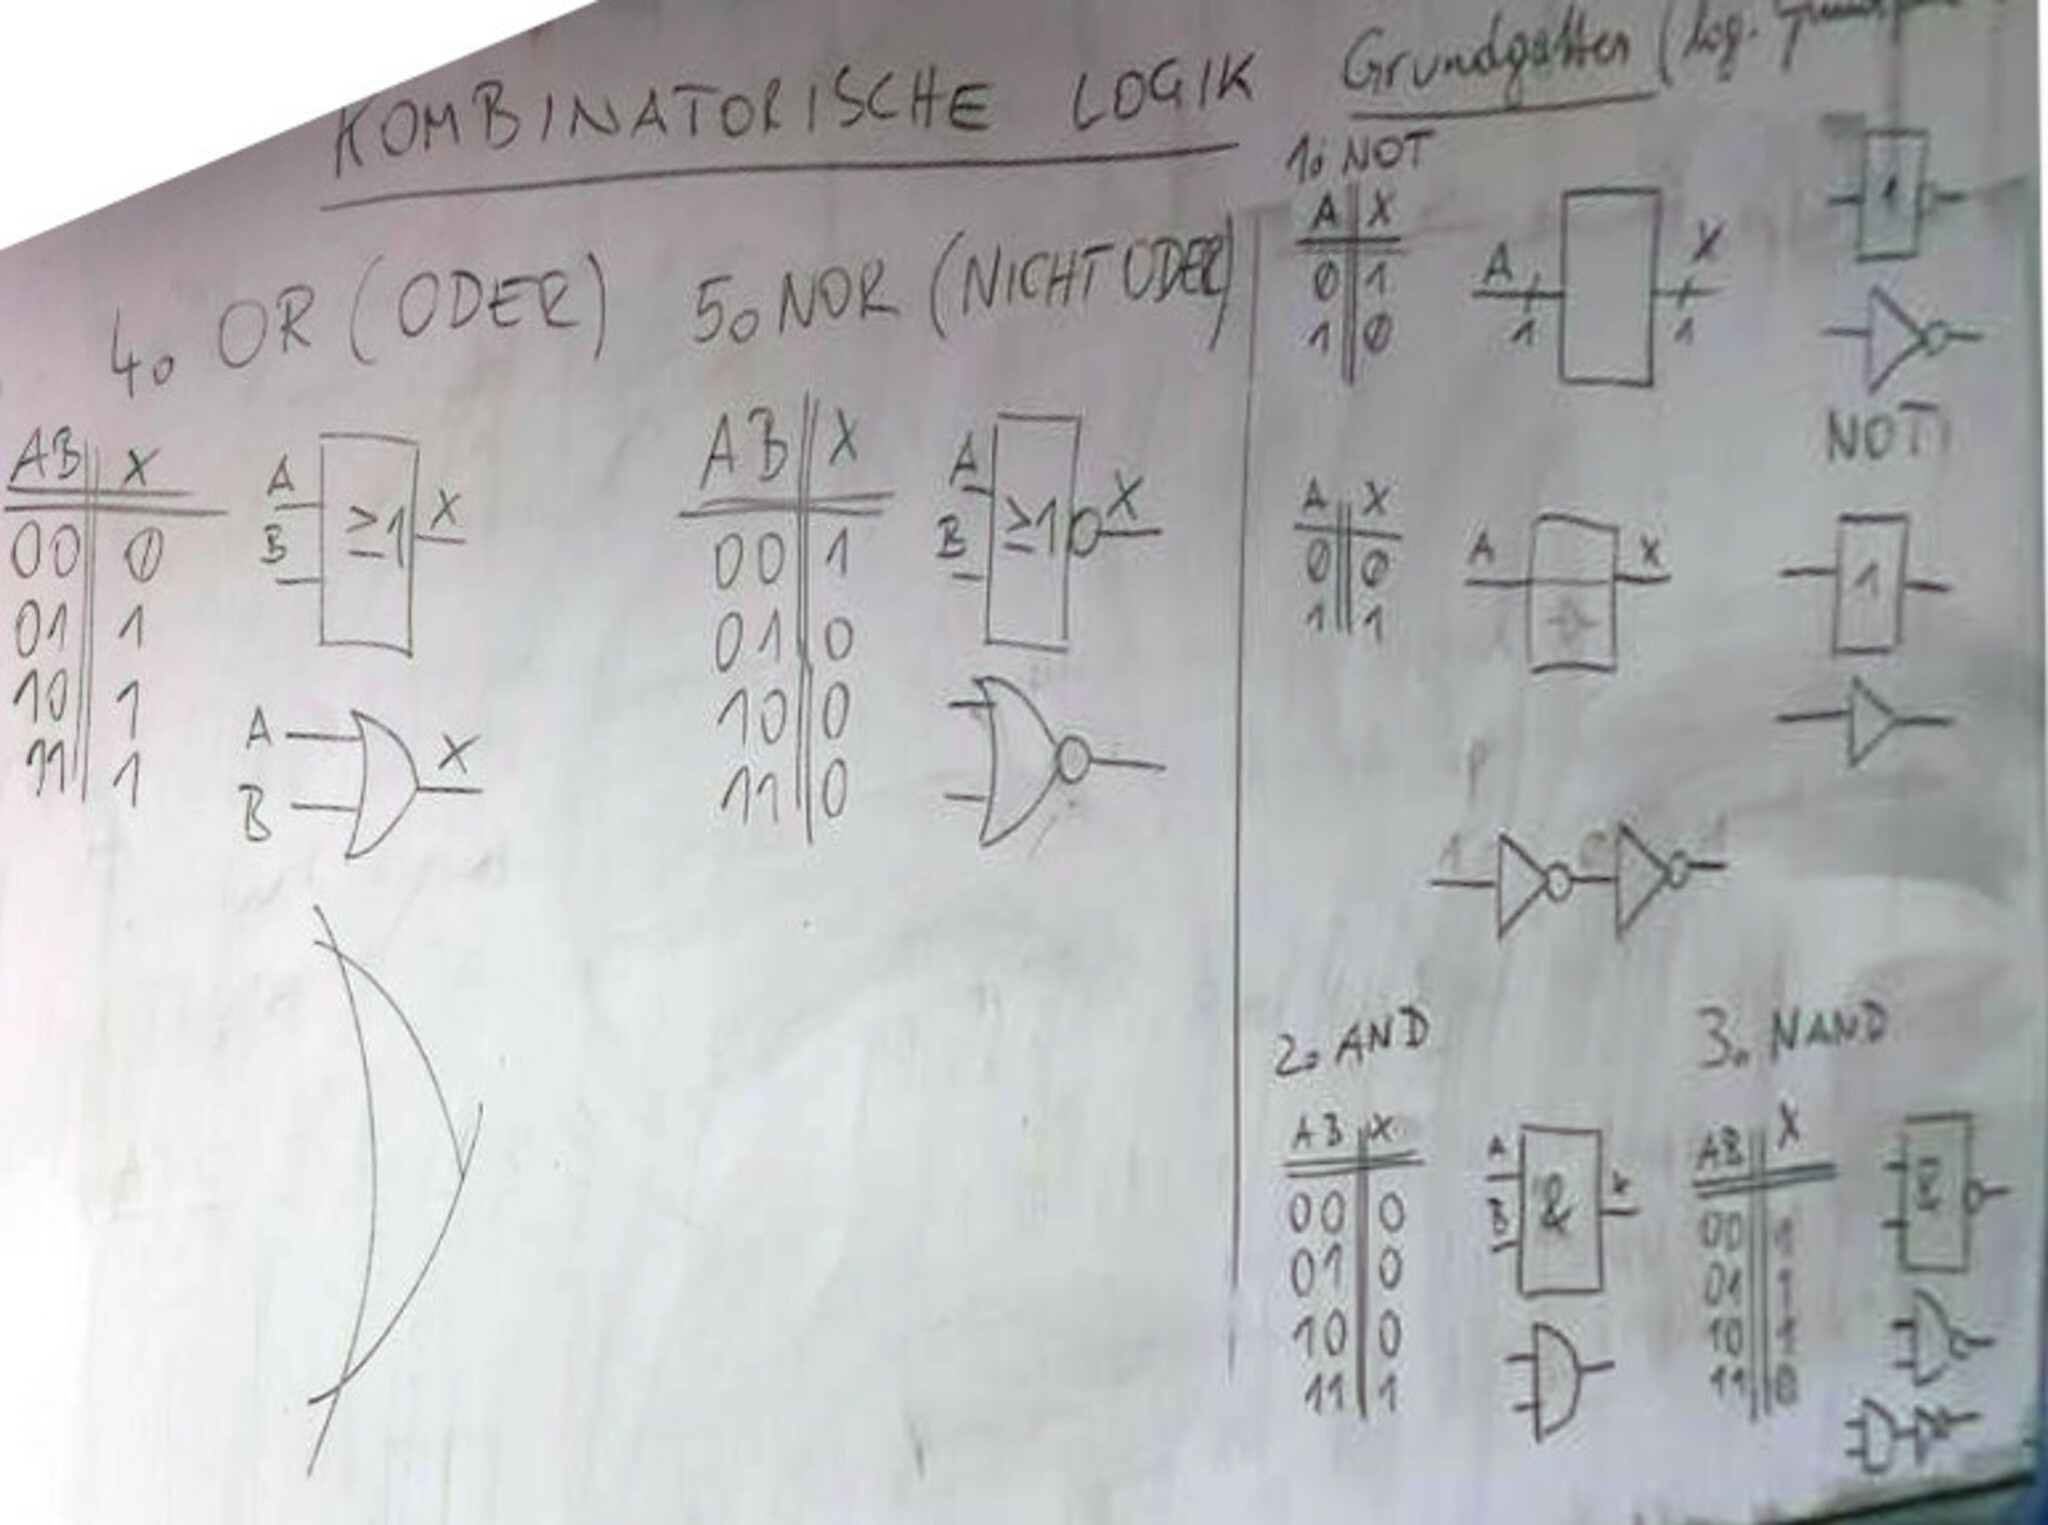 KOMBINATORISCHE LOGIK
4. OR (ODER)
AB X
00 0
01 1
10 1
11 1
A
B
≥1
X
A
B
X
5. NOR (NICHT ODER)
AB X
00 1
01 0
10 0
11 0
A
B
≥1
X
Grundgatter (log.
1. NOT
A X
0 1
1 0
A
1
X
1
1
NOT
A X
0 0
1 1
A
X
1
2. AND
AB X
00 0
01 0
10 0
11 1
A
B
&
X
3. NAND
AB X
00 1
01 1
10 1
11 0
&